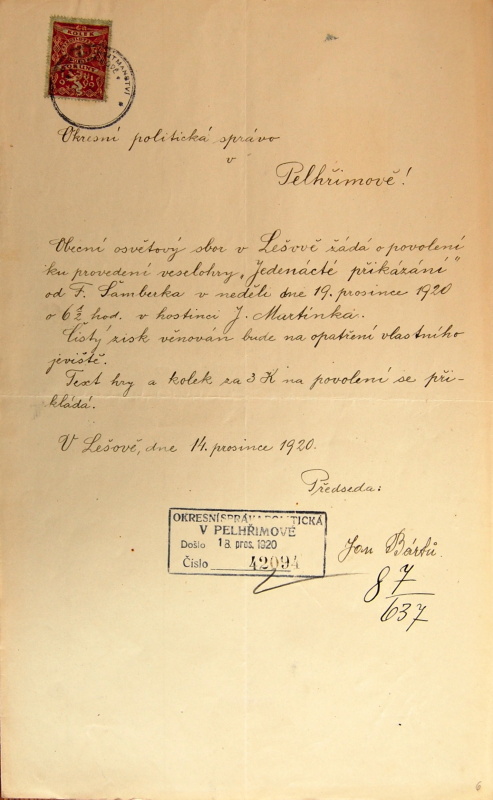 Okresní politická správo
v
Pelhřimově!
Obecní osvětový sbor v Lešově žádá o povolení
ku provedení veselohry „Jedenácté přikázání"
od F. Šamberka v neděli dne 19. prosince 1920
o 6½ hod. v hostinci J. Martínka.
Čistý zisk věnován bude na opatření vlastního
jeviště.
Text hry a kolek za 3 K na povolení se při-
kládá.
V Lešově, dne 14. prosince 1920.
Předseda:
Jan Bártů.
OKRESNÍ SPRÁVA POLITICKÁ
V PELHŘIMOVĚ
Došlo 18. pros. 1920
Číslo 42094
8 7
637
6